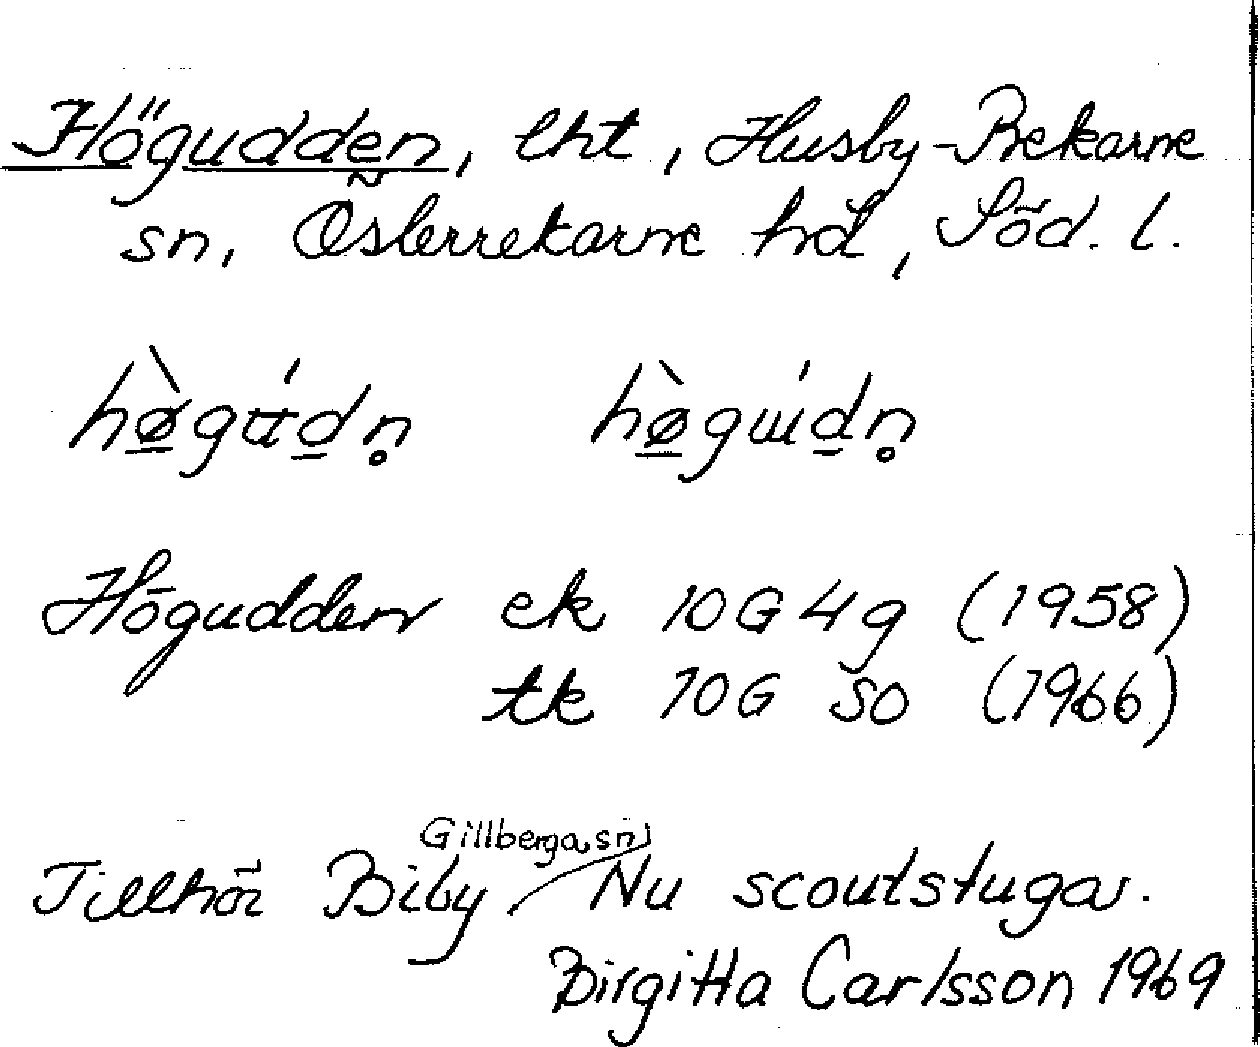 Högudden, lht, Husby-Rekarne
sn, Österrekarne hd, Söd. l.
hø̀gʉ́dn̥ hø̀gɯ́dn̥
Högudden ek 10G4g (1958)
tk 10G SO (1966)
Gillberga sn
Tillhör Biby. Nu scoutstuga.
Birgitta Carlsson 1969